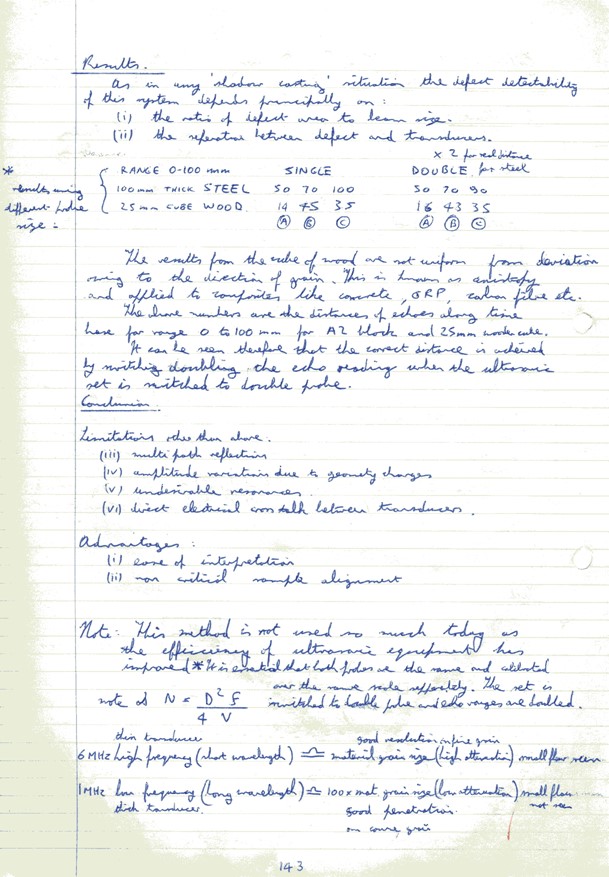 Results.
As in any 'shadow casting' situation the defect detectability
of this system depends principally on:
(i) the ratio of defect area to beam size.
(ii) the seperation between defect and transducers.
x 2 for real distance
RANGE 0-100 mm SINGLE DOUBLE for steel
* results using different probe size: 100 mm THICK STEEL 50 70 100 50 70 90
25 mm CUBE WOOD. 14 45 35 16 43 35
A B C A B C
The results from the cube of wood are not uniform from deviation
owing to the direction of grain. This is known as
and applied to composites like concrete, GRP, carbon fibre etc.
The above numbers are the distances of echoes along time
base for range 0 to 100 mm for A2 block and 25mm wooden cube.
It can be seen therefore that the correct distance is achieved
by switching doubling the echo reading when the ultrasonic
set is switched to double probe.
Conclusion
Limitations other than above.
(iii) multi path reflections
(iv) amplitude variations due to geometry changes
(v) undesirable resonances.
(vi) direct electrical cross talk between transducers.
Advantages:
(i) ease of interpretation
(ii) non critical sample alignment
Note: This method is not used so much today as
the efficiency of ultrasonic equipment has
improved * It is essential that both probes are the same and calibrated
over the same scale seperately. The set is
note N = D² f / 4 V switched to double probe and echo ranges are doubled.
thin transducer good resolution in fine grain
6 MHz high frequency (short wavelength) ≏ material grain size (high attenuation) small flaw seen
1 MHz low frequency (long wavelength) ≏ 100 x mat. grain size (low attenuation) small flaw
thick transducer. good penetration. not seen
on coarse grain
143